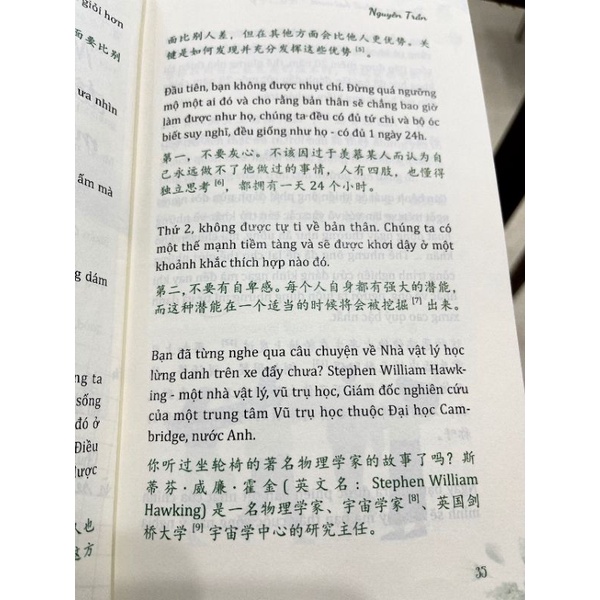 Nguyên Trần
面比别人差，但在其他方面会比他人更优势。关
键是如何发现并充分发挥这些优势 [5]。
Đầu tiên, bạn không được nhụt chí. Đừng quá ngưỡng
mộ một ai đó và cho rằng bản thân sẽ chẳng bao giờ
làm được như họ, chúng ta đều có đủ tứ chi và bộ óc
biết suy nghĩ, đều giống như họ - có đủ 1 ngày 24h.
第一，不要灰心。不该因过于羡慕某人而认为自
己永远做不了他做过的事情，人有四肢，也懂得
独立思考 [6]，都拥有一天 24 个小时。
Thứ 2, không được tự ti về bản thân. Chúng ta có
một thế mạnh tiềm tàng và sẽ được khơi dậy ở một
khoảnh khắc thích hợp nào đó.
第二，不要有自卑感。每个人自身都有强大的潜能，
而这种潜能在一个适当的时候将会被挖掘 [7] 出来。
Bạn đã từng nghe qua câu chuyện về Nhà vật lý học
lừng danh trên xe đẩy chưa? Stephen William Hawk-
ing - một nhà vật lý, vũ trụ học, Giám đốc nghiên cứu
của một trung tâm Vũ trụ học thuộc Đại học Cam-
bridge, nước Anh.
你听过坐轮椅的著名物理学家的故事了吗？斯
蒂芬·威廉·霍金 ( 英文名： Stephen William
Hawking) 是一名物理学家、宇宙学家 [8]、英国剑
桥大学 [9] 宇宙学中心的研究主任。
35
giỏi hơn
面要比别
ưa nhìn
ấm mà
g dám
ng ta
sống
đó ở
Điều
được
人也
这方